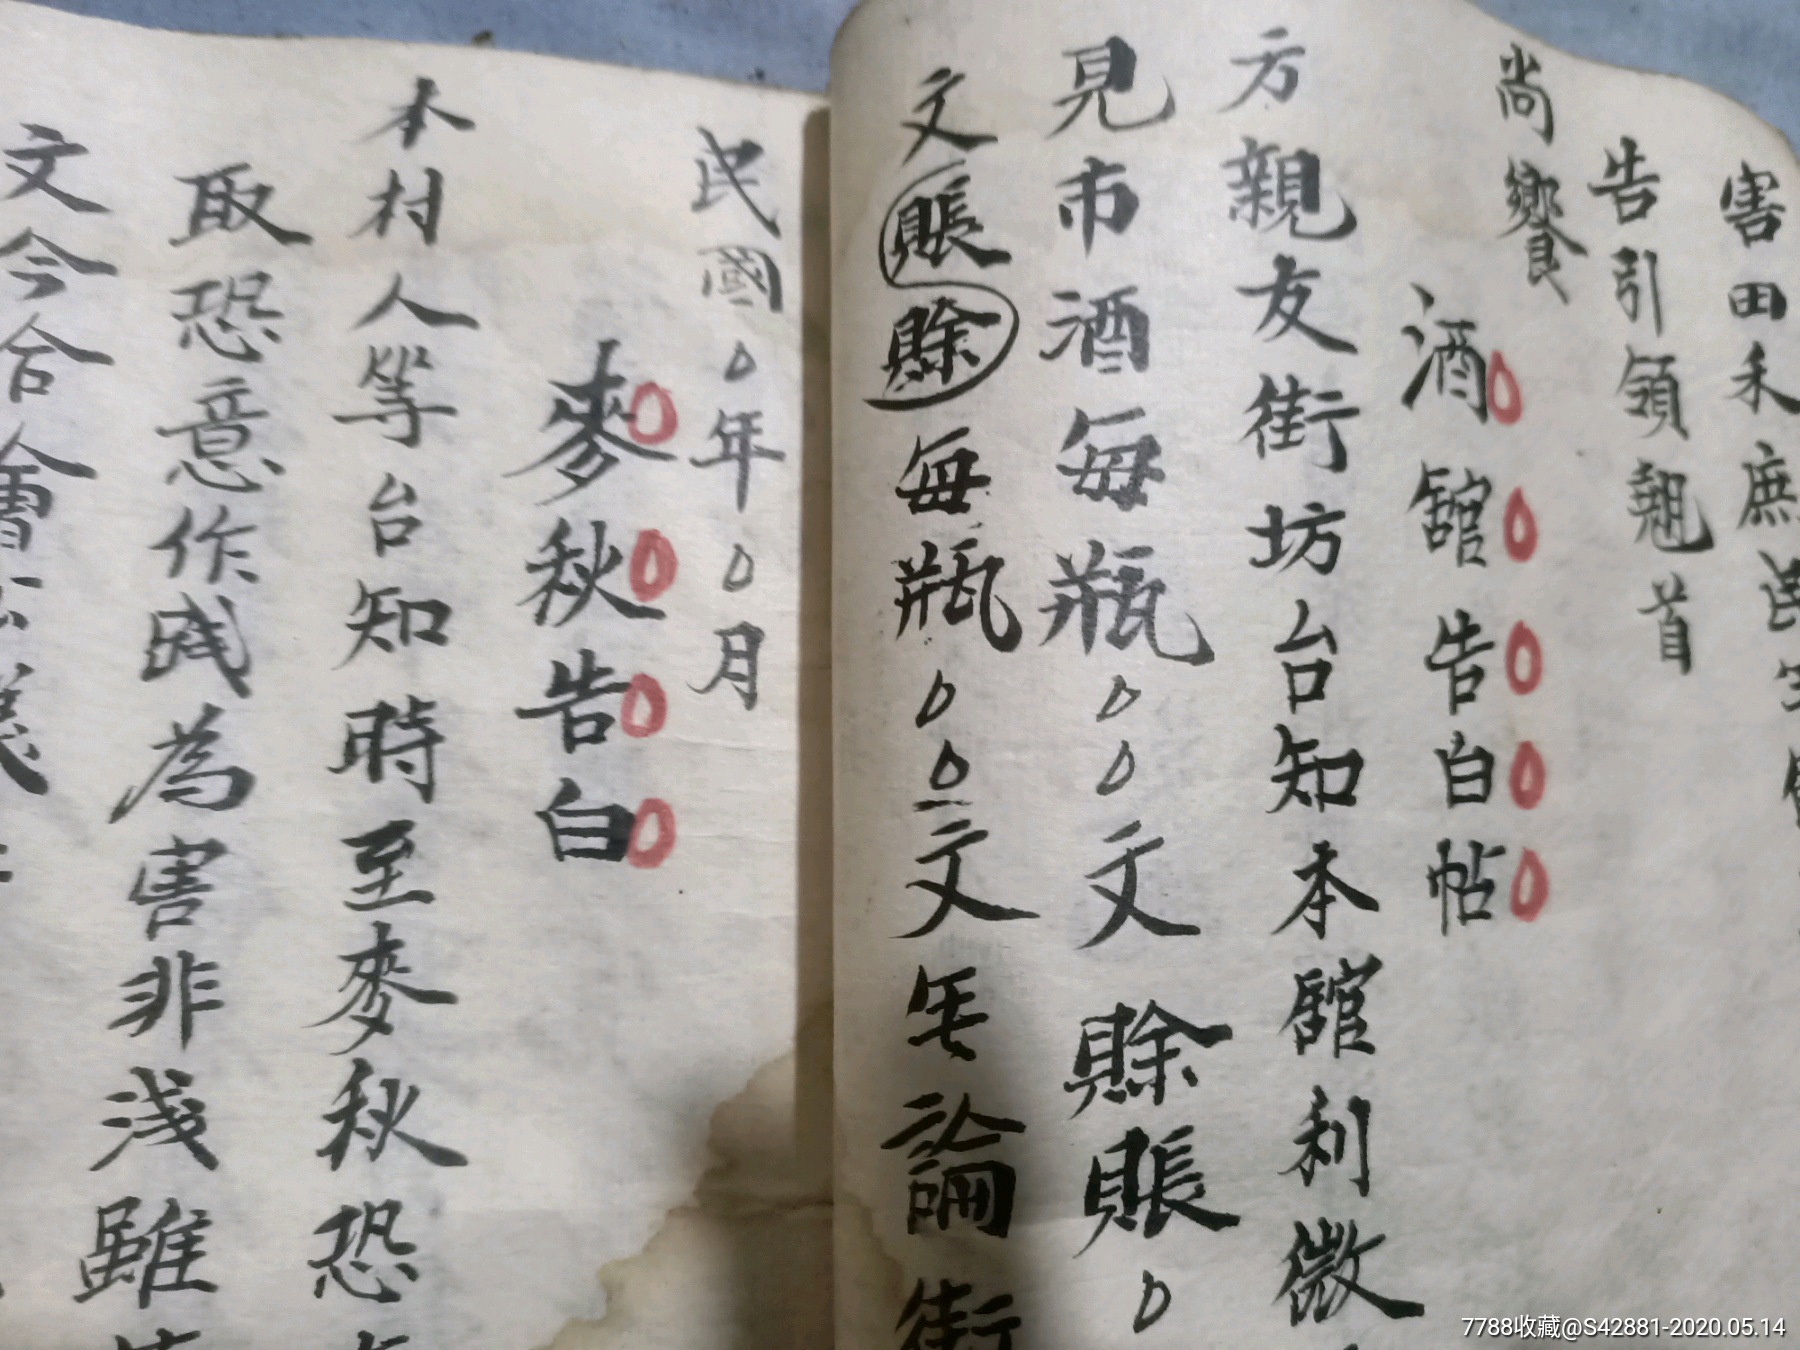 害田禾庶民
告引領翹首
尚饗
酒舘告白帖
方親友街坊台知本舘利微
見市酒每瓶〇〇文賒賬〇
文賬賒每瓶〇〇文無論街
民國〇年〇月
麥秋告白
本村人等台知時至麥秋恐
取恐意作践為害非淺雖
文今合會公議
7788收藏@S42881-2020.05.14